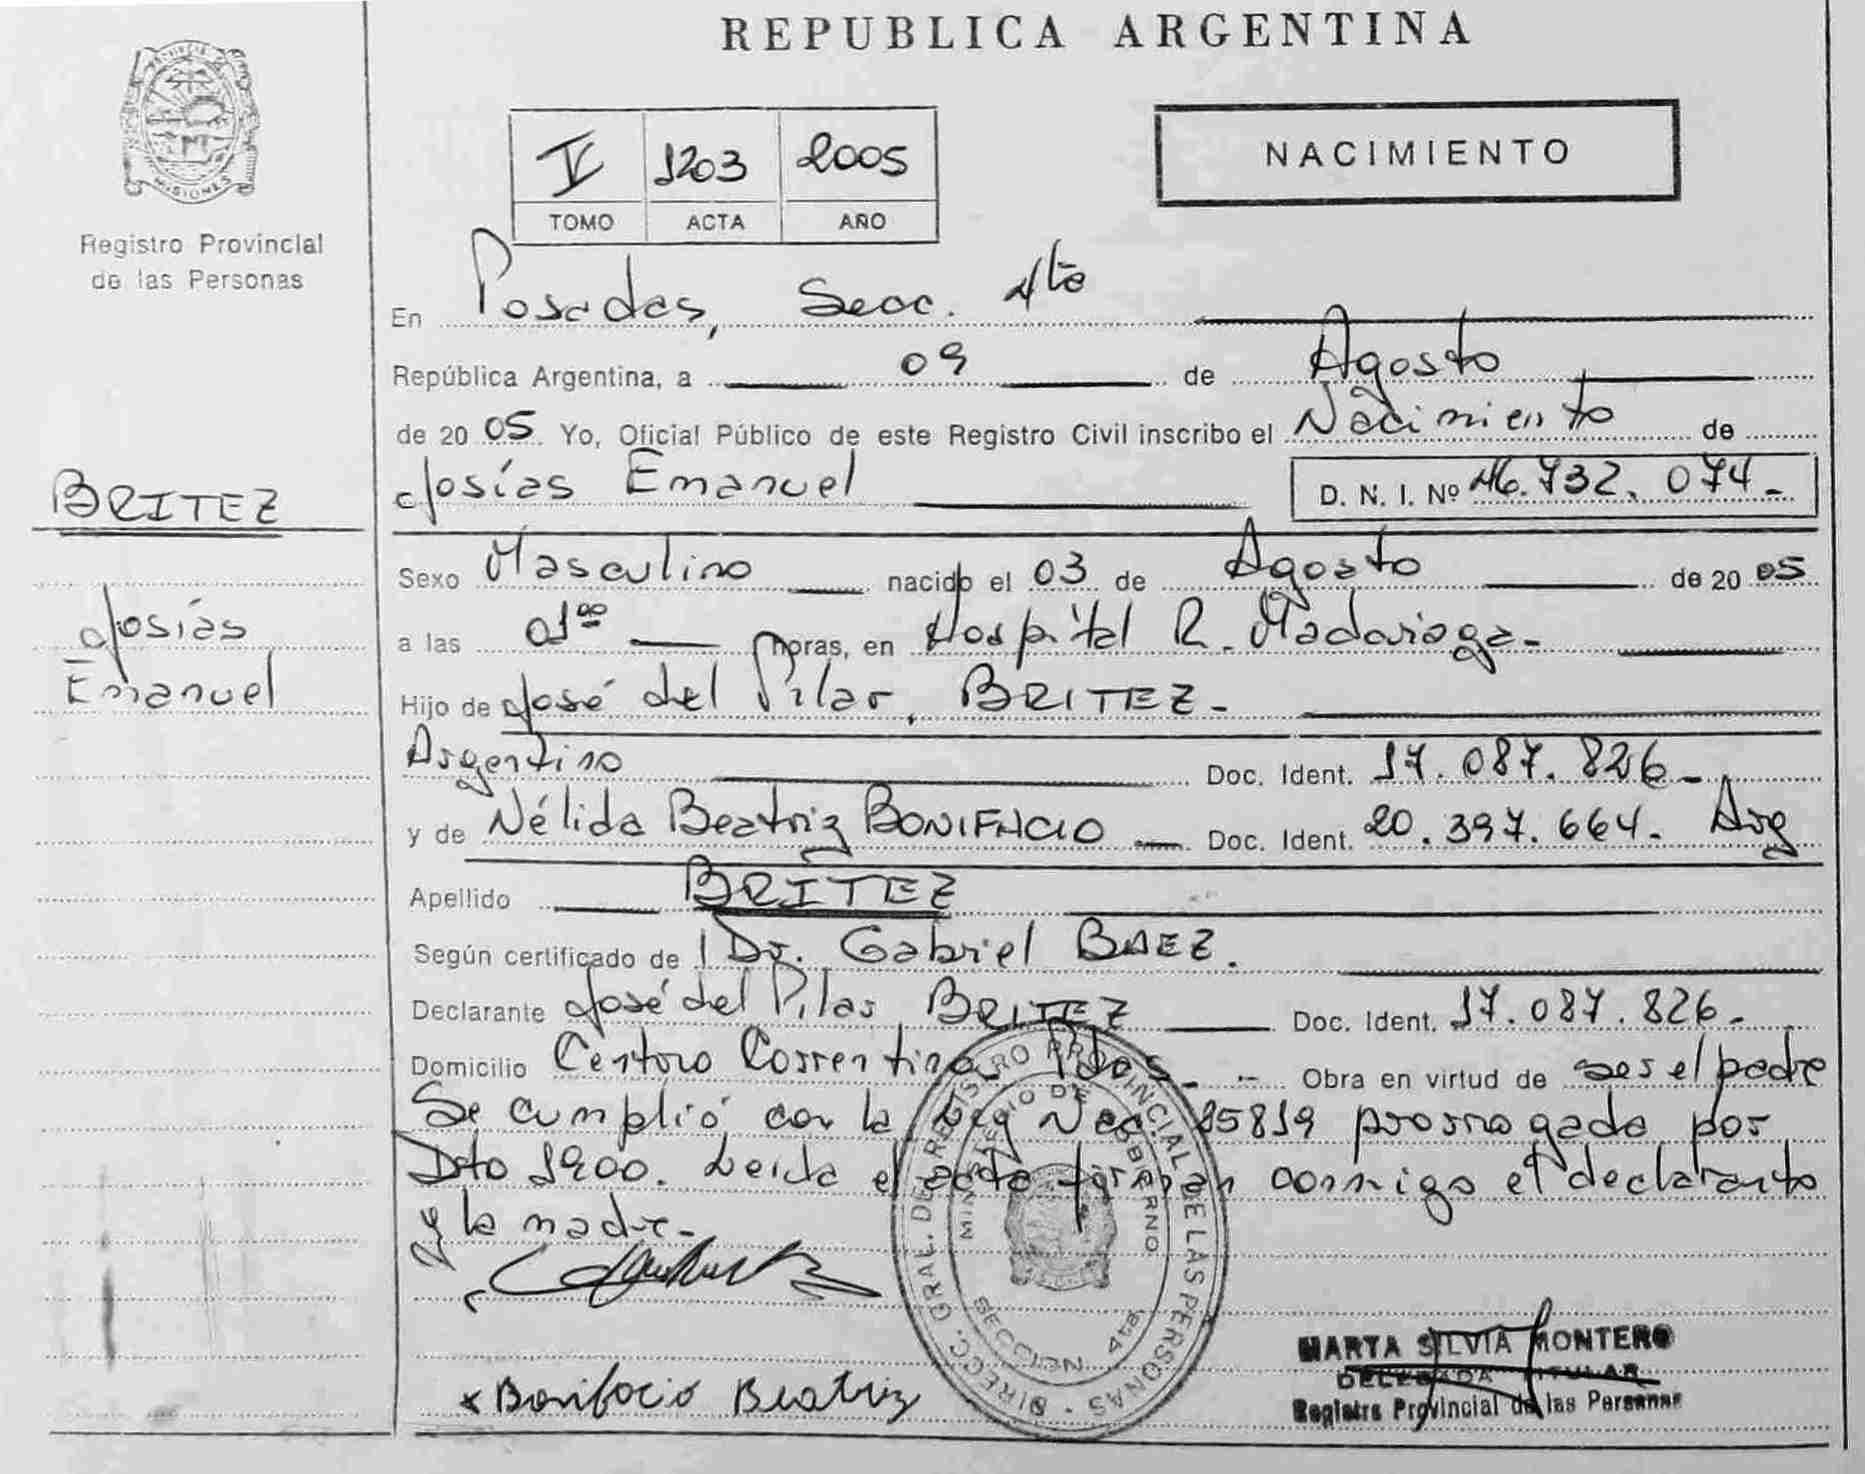 REPUBLICA ARGENTINA
PROVINCIA DE
MISIONES
Registro Provincial
de las Personas
V 1203 2005
TOMO ACTA AÑO
NACIMIENTO
En Posadas, Secc. 4ta
República Argentina, a 09 de Agosto
de 2005 Yo, Oficial Público de este Registro Civil inscribo el Nacimiento de
Josías Emanuel D. N. I. Nº 46.732.074.-
BRITEZ
Josías
Emanuel
Sexo Masculino nacido el 03 de Agosto de 2005
a las 01oo horas, en Hospital R. Madariaga-
Hijo de José del Pilar, BRITEZ-
Argentino Doc. Ident. 17.087.826-
y de Nélida Beatriz BONIFACIO Doc. Ident. 20.397.664- Arg
Apellido BRITEZ
Según certificado de Dr. Gabriel BAEZ.
Declarante José del Pilar BRITEZ Doc. Ident. 17.087.826-
Domicilio Centro Correntino Pdas.- Obra en virtud de ser el padre
Se cumplió con la Ley Nac. 25819 prorrogada por
Dto 1900. Leida el acta firman conmigo el declarante
y la madre-
DIRECC. GRAL. DEL REGISTRO PROVINCIAL DE LAS PERSONAS
MINISTERIO DE GOBIERNO
SECCION 4ta
x Bonifacio Beatriz
MARTA SILVIA MONTERO
DELEGADA TITULAR
Registro Provincial de las Personas